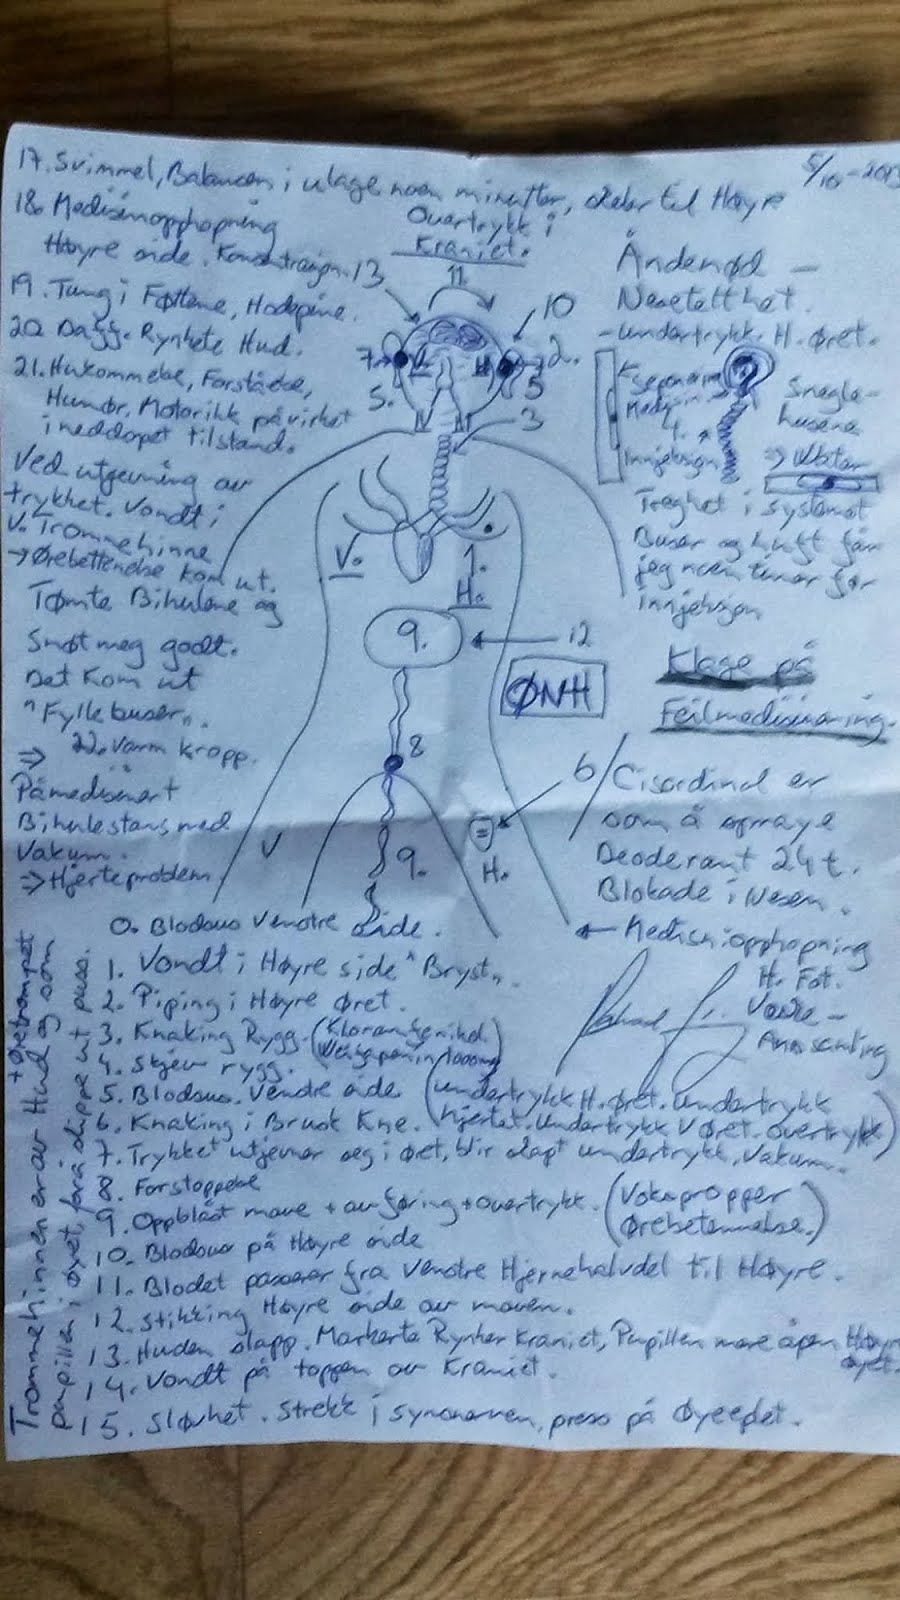 17. Svimmel, Balansen i ulage noen minutter, deler til Høyre
5/10-2013
18. Medisinopphopning
Høyre side. Konsentrasjon.
19. Tung i Føttene, Hodepine.
20. Dagg. Rynkete Hud.
21. Hukommelse, Forståelse,
Humør, Motorikk påvirket
i neddopet tilstand.
Ved utgevning av
trykket. Vondt i
V. Trommehinne
→ Ørebettendelse kom ut.
Tømte Bihulene og
Snøt meg godt.
Det kom ut
"Fyllebuser".
22. Varm kropp.
⇒
Påmedisinert
Bihulestans med
Vakum.
⇒ Hjerteproblem
Overtrykk i
Kraniet.
13
11.
10
7
2.
5.
5
3
V.
1.
H.
9.
12
ØNH
8
6
V
9.
H.
Åndenød -
Nesetetthet.
- Undertrykk. H. Øret.
Medisin
4.
Innjeksjon
Snegle-
husene
⇒ Water
Treghet i systemet
Buser og luft får
jeg noen timer før
innjeksjon
Klage på
Feilmedisinering.
Cisordinol er
som å spraye
Deoderant 24 t.
Blokade i Nesen.
← Medisinopphopning
H. Fot.
Væske-
Ansamling
0. Blodsus Venstre Side.
1. Vondt i Høyre side "Bryst"
2. Piping i Høyre Øret.
3. Knaking Rygg. (Kloramfenikol
4. Skjev rygg.
5. Blodsus. Venstre side (Undertrykk H. Øret. Undertrykk
6. Knaking i Brusk Kne. Hjertet. Undertrykk V Øret. Overtrykk)
7. Trykket utjevner seg i øret, blir slapt undertrykk, Vakum.
8. Forstoppelse
9. Oppblåst mave + avføring + overtrykk. (Vokspropper
Ørebetennelse.)
10. Blodsus på Høyre side
11. Blodet passerer fra Venstre Hjernehalvdel til Høyre.
12. Stikking Høyre side av maven.
13. Huden slapp. Markerte Rynker Kraniet, Pupillen mere åpen Høyre
øyet.
14. Vondt på toppen av Kraniet.
15. Sløvhet. Strekk i synsnerven, press på Øyeeplet.
Trommehinnen er av Hud og som
pupillen i øyet, for å slippe ut puss.
+ Øretrompet